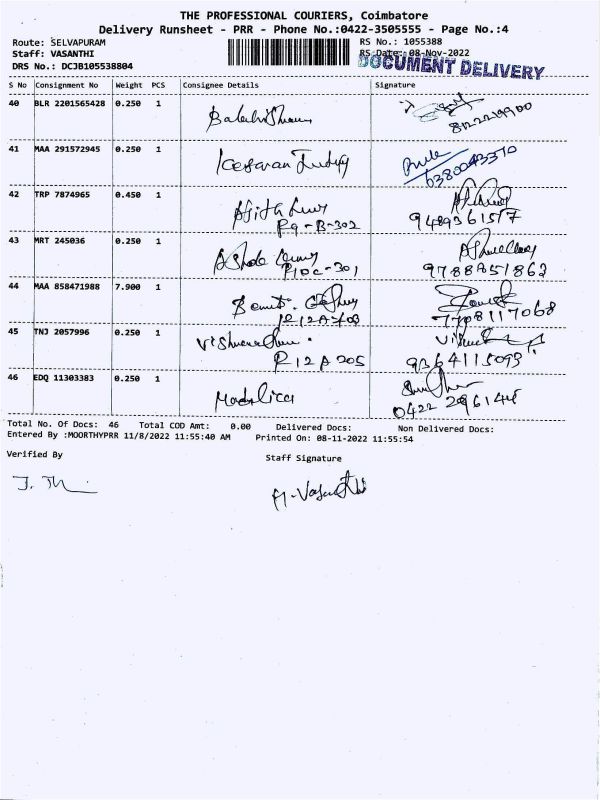 THE PROFESSIONAL COURIERS, Coimbatore
Delivery Runsheet - PRR - Phone No.:0422-3505555 - Page No.:4
Route: SELVAPURAM
RS No.: 1055388
Staff: VASANTHI
RS Date: 08-Nov-2022
DOCUMENT DELIVERY
DRS No.: DCJB105538804
S No Consignment No Weight PCS Consignee Details Signature
40 BLR 2201565428 0.250 1
41 MAA 291572945 0.250 1
6380043370
42 TRP 7874965 0.450 1 Ajith Kumar
R9-B-302 9489361517
43 MRT 245036 0.250 1
R10C-301 9788851862
44 MAA 858471988 7.900 1
7708117068
45 TNJ 2057996 0.250 1
R12A205 9364115093
46 EDQ 11303383 0.250 1
0422 296144
Total No. Of Docs: 46 Total COD Amt: 0.00 Delivered Docs: Non Delivered Docs:
Entered By :MOORTHYPRR 11/8/2022 11:55:40 AM Printed On: 08-11-2022 11:55:54
Verified By Staff Signature
M-Vasanthi